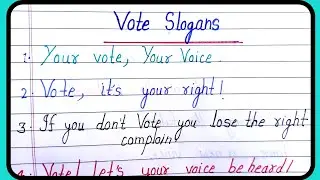 Vote Slogans
1. Your vote, Your Voice.
2. Vote, it's your right!
3. If you don't Vote you lose the right
complain
4. Vote! let's your voice be heard!